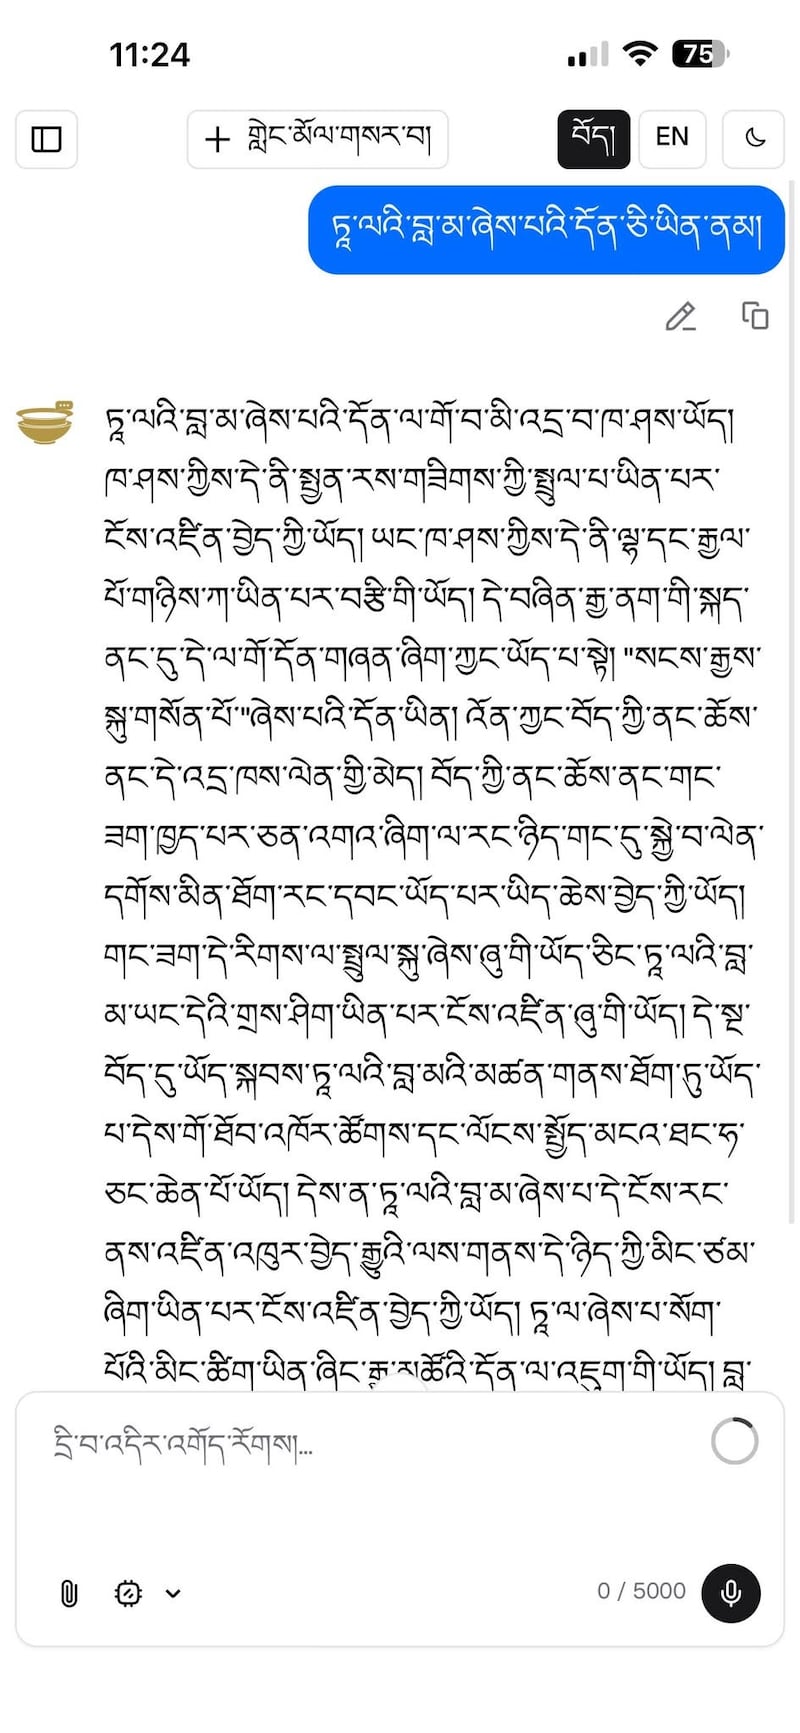 11:24
75
+ གླེང་མོལ་གསར་བ།
བོད།
EN
ཏཱ་ལའི་བླ་མ་ཞེས་པའི་དོན་ཅི་ཡིན་ནམ།
ཏཱ་ལའི་བླ་མ་ཞེས་པའི་དོན་ལ་གོ་བ་མི་འདྲ་བ་ཁ་ཤས་ཡོད།
ཁ་ཤས་ཀྱིས་དེ་ནི་སྤྱན་རས་གཟིགས་ཀྱི་སྤྲུལ་པ་ཡིན་པར་
ངོས་འཛིན་བྱེད་ཀྱི་ཡོད། ཡང་ཁ་ཤས་ཀྱིས་དེ་ནི་ལྷ་དང་རྒྱལ་
པོ་གཉིས་ཀ་ཡིན་པར་བརྩི་གི་ཡོད། དེ་བཞིན་རྒྱ་ནག་གི་སྐད་
ནང་དུ་དེ་ལ་གོ་དོན་གཞན་ཞིག་ཀྱང་ཡོད་པ་སྟེ། "སངས་རྒྱས་
སྐུ་གསོན་པོ་"ཞེས་པའི་དོན་ཡིན། འོན་ཀྱང་བོད་ཀྱི་ནང་ཆོས་
ནང་དེ་འདྲ་ཁས་ལེན་གྱི་མེད། བོད་ཀྱི་ནང་ཆོས་ནང་གང་
ཟག་ཁྱད་པར་ཅན་འགའ་ཞིག་ལ་རང་ཉིད་གང་དུ་སྐྱེ་བ་ལེན་
དགོས་མིན་ཐོག་རང་དབང་ཡོད་པར་ཡིད་ཆེས་བྱེད་ཀྱི་ཡོད།
གང་ཟག་དེ་རིགས་ལ་སྤྲུལ་སྐུ་ཞེས་ཞུ་གི་ཡོད་ཅིང་ཏཱ་ལའི་བླ་
མ་ཡང་དེའི་གྲས་ཤིག་ཡིན་པར་ངོས་འཛིན་ཞུ་གི་ཡོད། དེ་སྔ་
བོད་དུ་ཡོད་སྐབས་ཏཱ་ལའི་བླ་མའི་མཚན་གནས་ཐོག་ཏུ་ཡོད་
པ་དེས་གོ་ཐོབ་འཁོར་ཚོགས་དང་ལོངས་སྤྱོད་མངའ་ཐང་ཧ་
ཅང་ཆེན་པོ་ཡོད། དེས་ན་ཏཱ་ལའི་བླ་མ་ཞེས་པ་དེ་ངོས་རང་
ནས་འཛིན་འཁུར་བྱེད་རྒྱུའི་ལས་གནས་དེ་ཉིད་ཀྱི་མིང་ཙམ་
ཞིག་ཡིན་པར་ངོས་འཛིན་བྱེད་ཀྱི་ཡོད། ཏཱ་ལ་ཞེས་པ་སོག་
པོའི་མིང་ཚིག་ཡིན་ཞིང་རྒྱ་མཚོའི་དོན་ལ་འཇུག་གི་ཡོད། བླ་
དྲི་བ་འདིར་འགོད་རོགས།...
0 / 5000